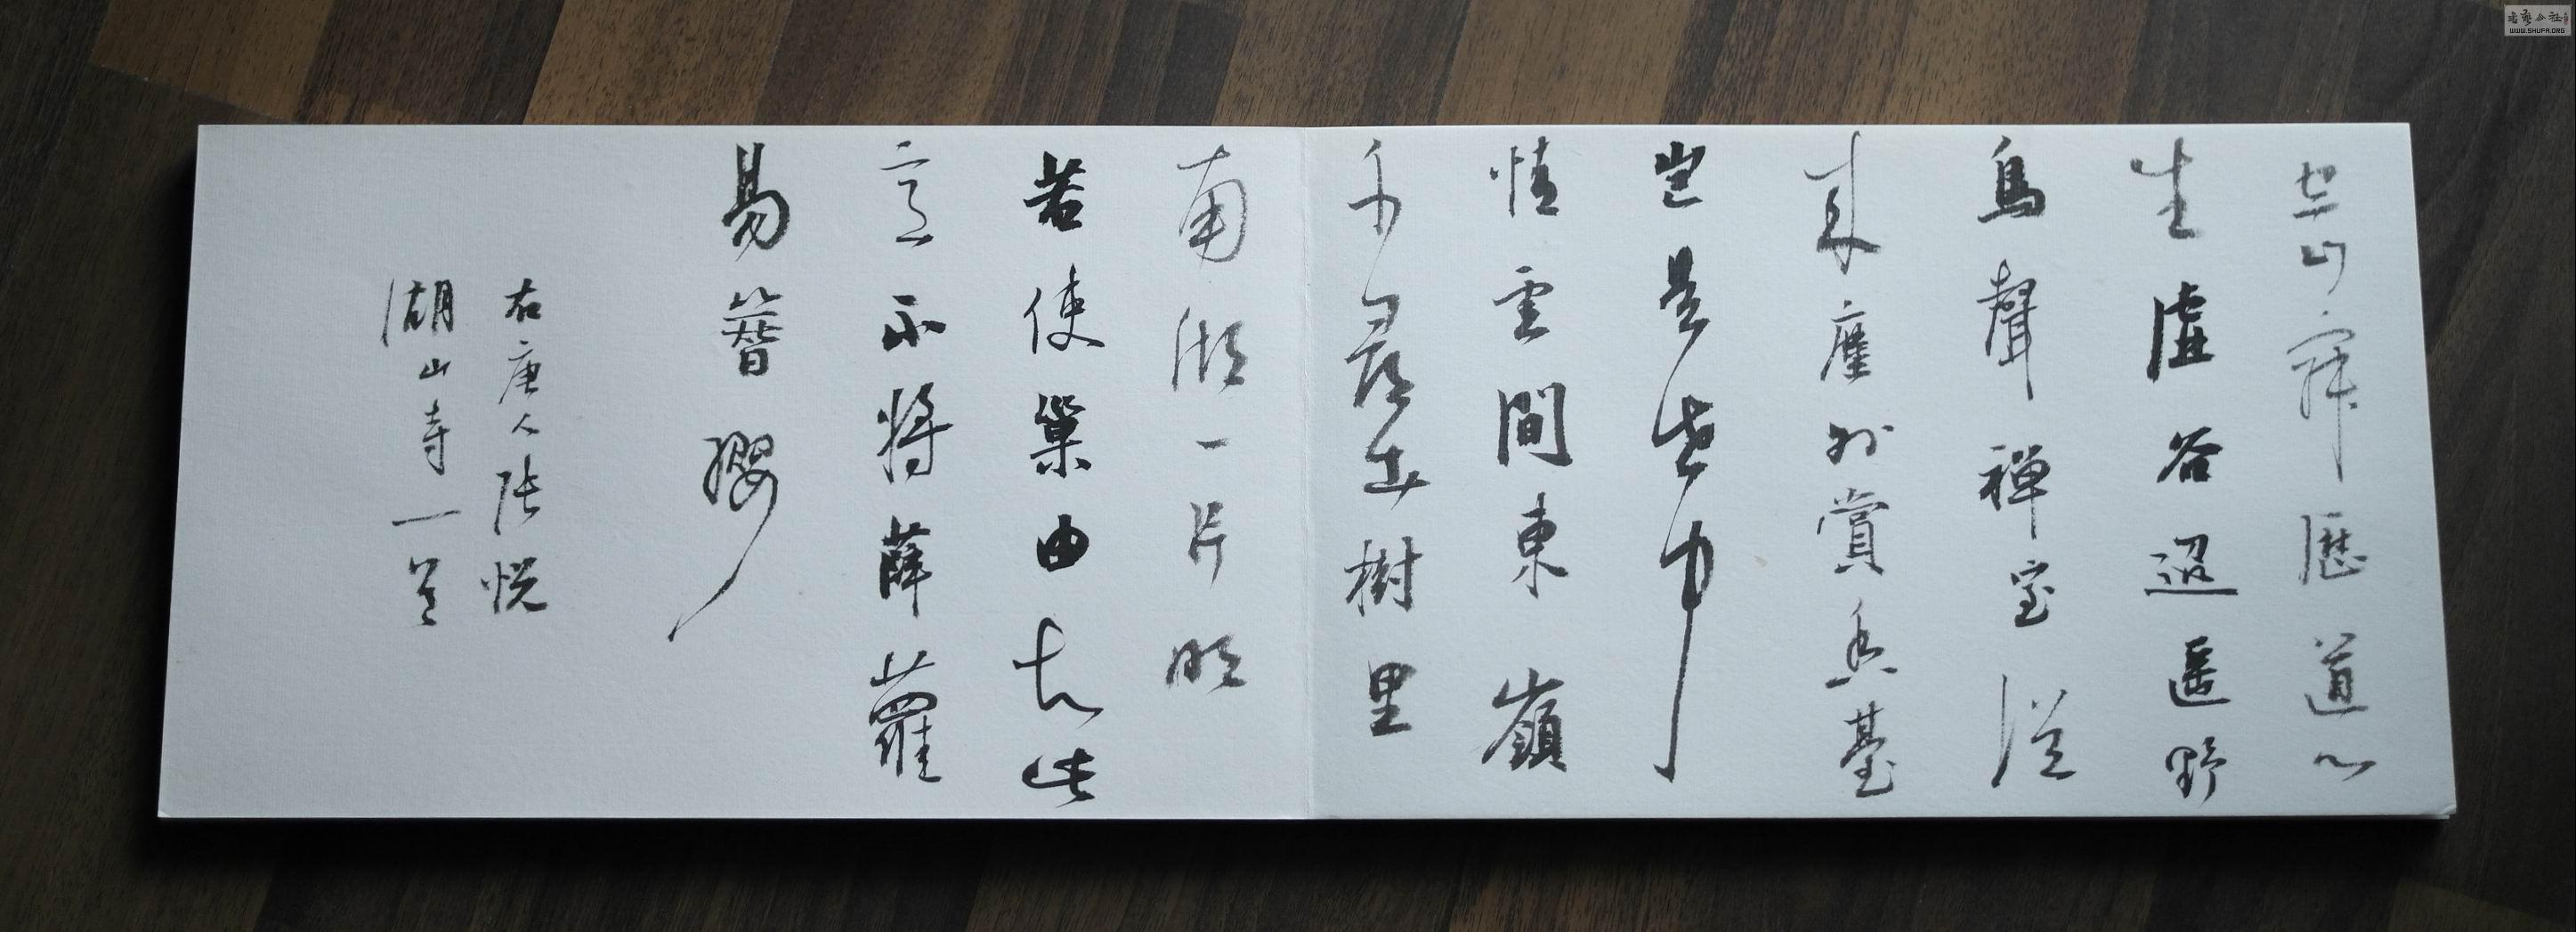 空山寂歷道心
生虛谷迢遙野
鳥聲禪室從
來塵外賞香臺
豈是世中
情雲間東嶺
千尋出樹里
南湖一片明
若使巢由知此
意不將薛蘿
易簪纓
右唐人張悅
湖山寺一首
書藝公社
WWW.SHUFA.ORG